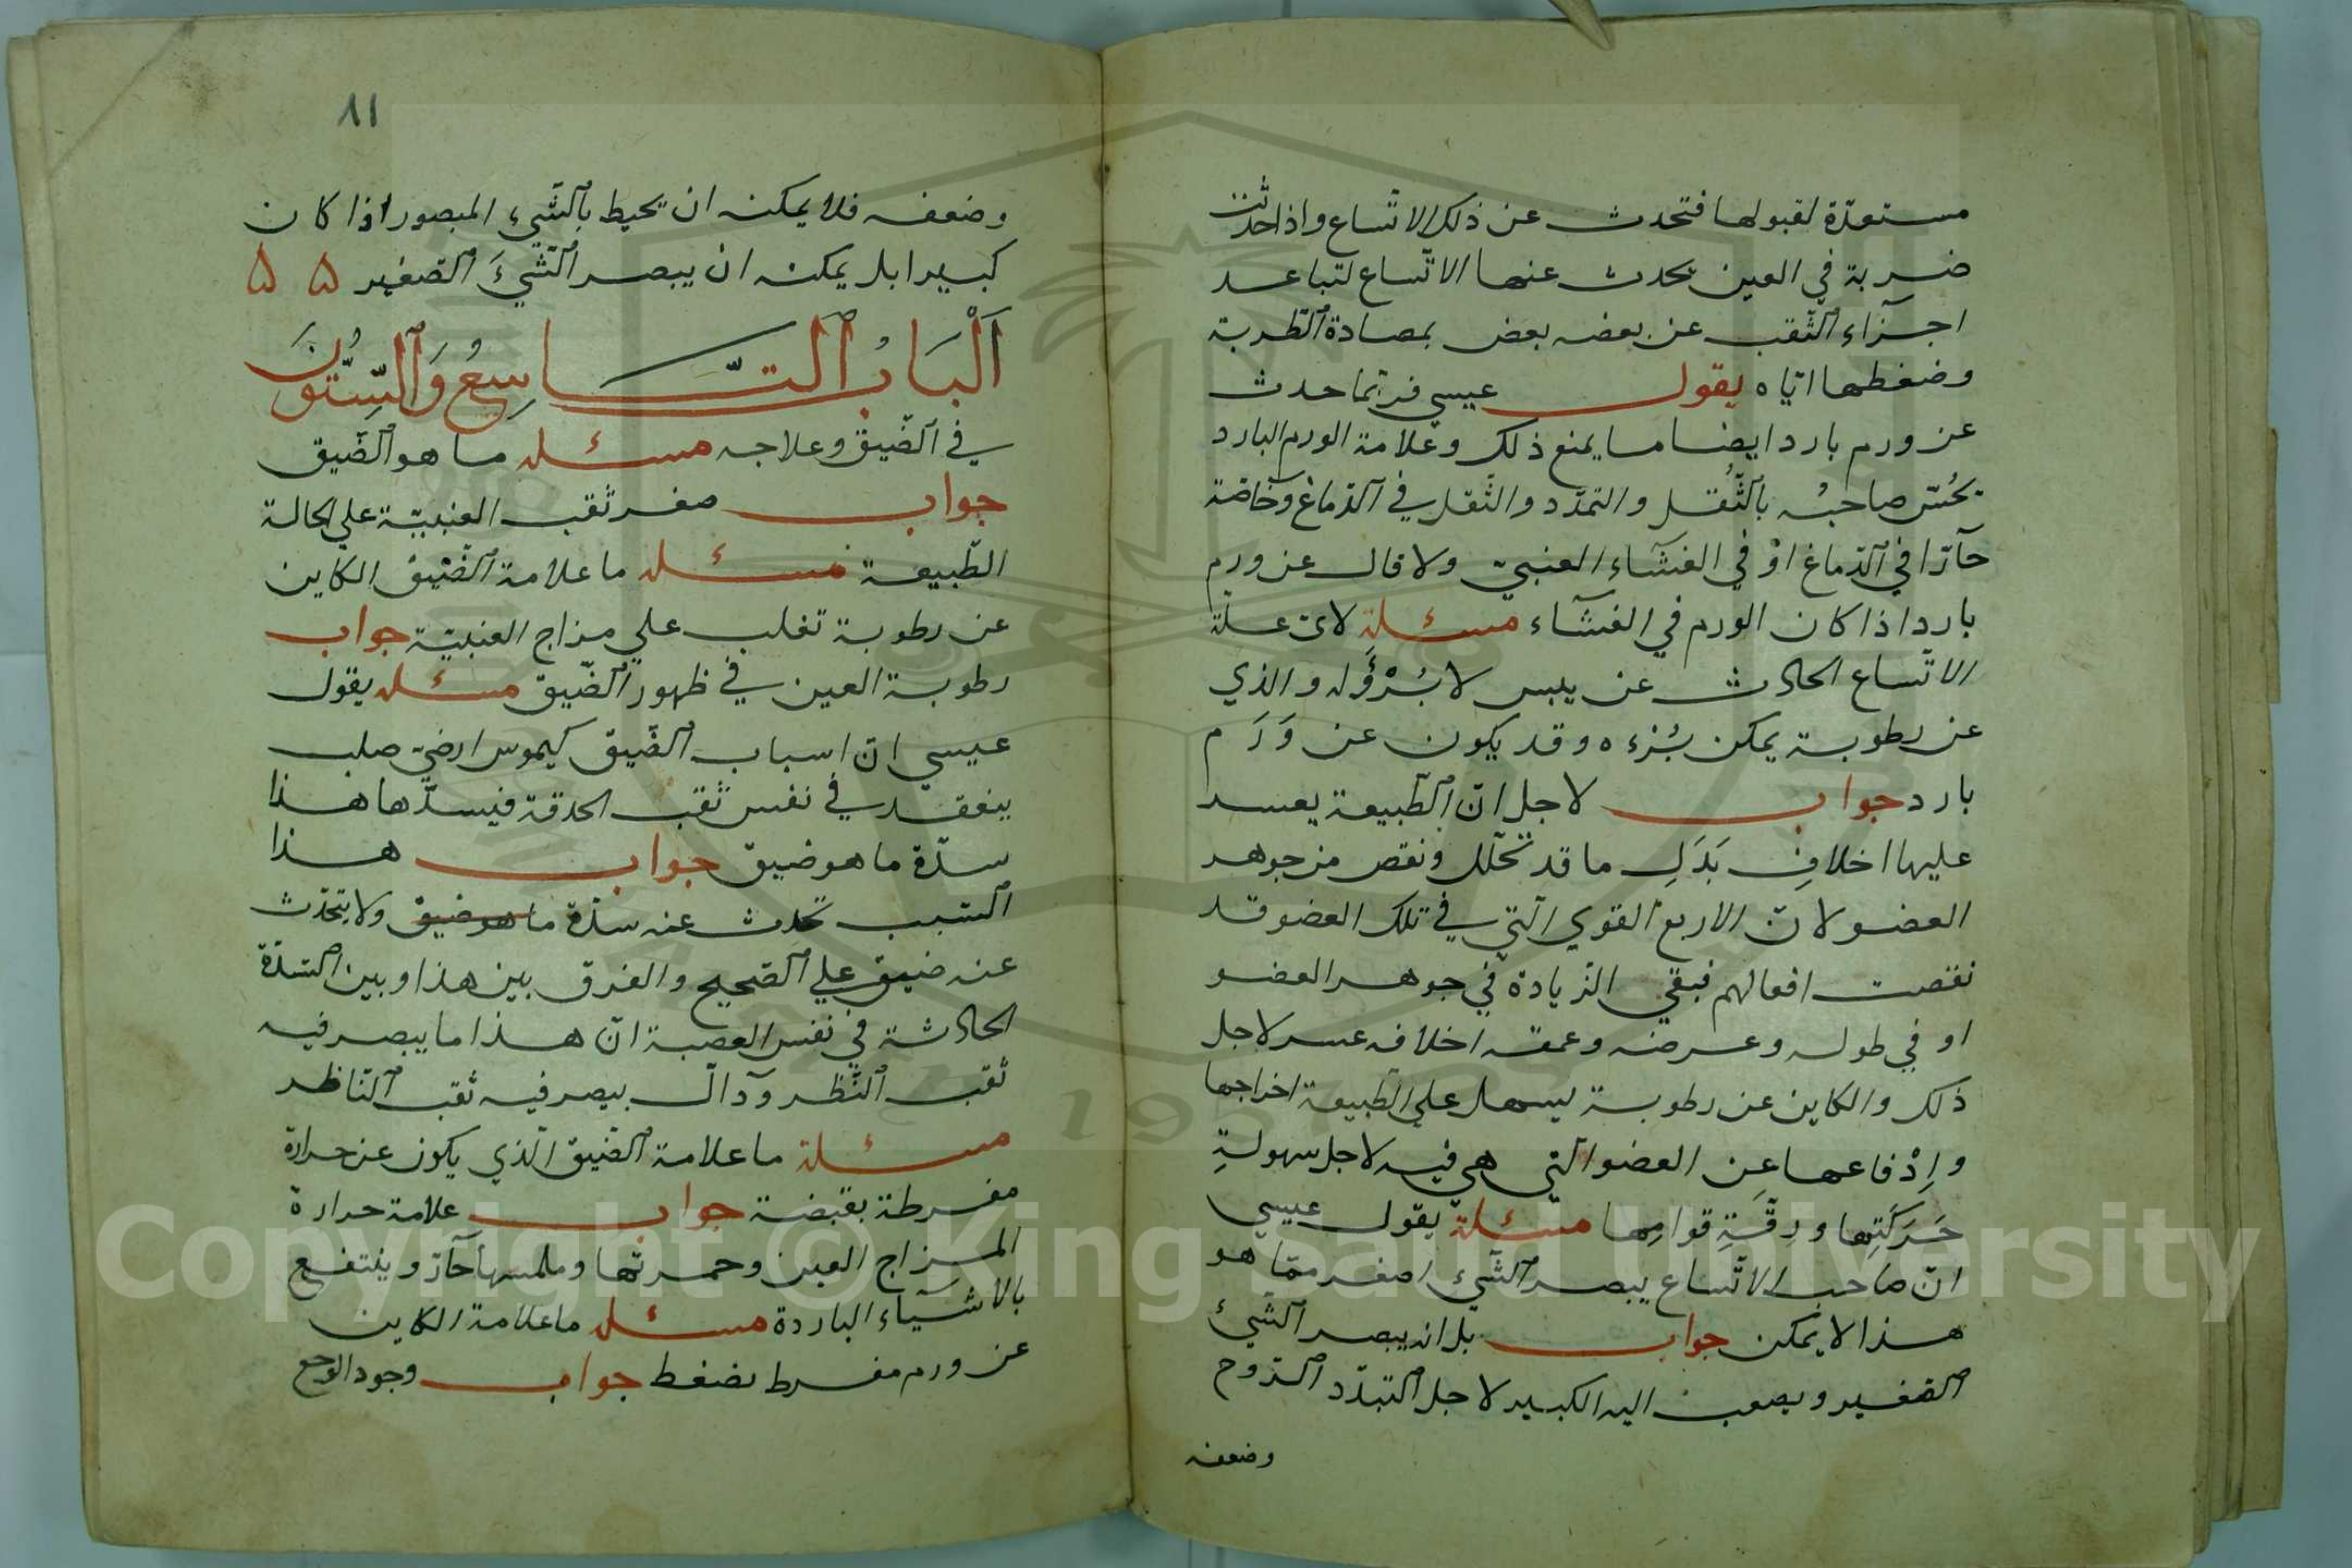 مستعدّة لقبولها فتحدث عن ذلك الاتّساع واذا حدثت
ضربة في العين يحدث عنها الاتّساع لتباعد
اجزآء ٱلثّقب عن بعضه بعض بمصادة ٱلطّربة
وضغطها ايّاه يقول عيسي فربّما حدث
عن ورم بارد ايضا ما يمنع ذلك وعلامة الورم البارد
يحُسّ صاحبُه بٱلثُّقل والتمدّد والثّقل في ٱلدّماغ وخآصّة
حآرّا في ٱلدّماغ اوْ في الغشآء العنبيّ ولا قال عن ورم
باردا اذا كان الورم في الغشآء مسئلة لايّ علّة
الاتّساع الحادث عن يبس لا بُرْؤَله والذي
عن رطوبة يمكن بُرْءه وقد يكون عن وَرَم
بارد جواب لاجل انّ ٱلطّبيعة يعسد
عليها اخلافِ بَدَلِ ما قد تحلّل ونقص من جوهر
العضو لانّ الاربع القوي الّتي في تلك العضو قد
نقصت افعالهم فبقي الزّيادة في جوهر العضو
او في طوله وعرضه وعمقه اخلافه عسر لاجل
ذلك والكاين عن رطوبة ليسهل علي ٱلطّبيعة اخراجها
وإِدْفاعها عن العضو الّتي هي فيه لاجل سهولةِ
حَرَكَتِها ورِقَّةِ قوامِها مسئلة يقول عيسي
انّ صاحب الاتّساع يبصر ٱلشّيء اصغر ممّا هو
هذا لا يمكن جواب بل انه يبصر ٱلشّيءَ
ٱلصّغير ويصعب اليه الكبير لاجل ٱلتبدّد ٱلرّوح
وضعفه
٨١
وضعفه فلا يمكنه ان يحيط بٱلشّيء المبصور اذا كان
كبيرا بل يمكنه ان يبصر ٱلشّيءَ ٱلصّغير ۵ ۵
اَلْبَابُ ٱلتَّاسِعُ وَٱلسِّتُّونَ
في ٱلضّيق وعلاجه مسئله ما هو ٱلضّيق
جواب صغر ثقب العنبيّة علي الحالة
الطّبيعة مسئله ما علامة ٱلضّيق الكاين
عن رطوبة تغلب علي مزاج العنبيّة جواب
رطوبة العين في ظهور ٱلضّيق مسئله يقول
عيسي انّ اسباب ٱلضّيق كيموس ارضيّ صلب
ينعقد في نفس ثقب الحدقة فيسدّها هذا
سدّة ما هو ضيق جواب هذا
ٱلسّبب تحدث عنه سدّة ما هو ضيق ولا يتحدّث
عنه ضيق علي ٱلصّحيح والفرق بين هذا وبين ٱلسّدّة
الحادثة في نفس العصبة انّ هذا ما يبصر فيه
ثقب ٱلنّظر وذآلك يبصر فيه ثقب ٱلنّاظر
مسئلة ما علامة ٱلضّيق الّذي يكون عن حرارة
مفرطة بقبضة جواب علامة حرارة
المزاج العين وحمرتها وملمسها حآرّ وينتفع
بالاشيآء الباردة مسئله ما علامة الكاين
عن ورم مفرط بضغط جواب وجود الوجع
Copyright © King Saud University
1957